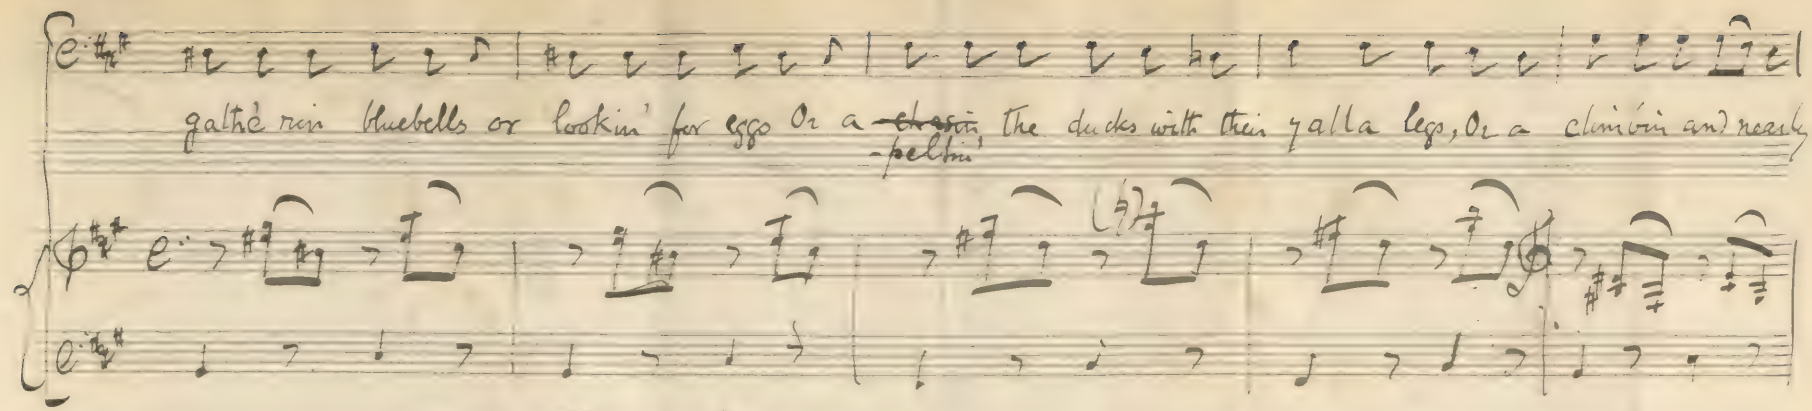 gathe'rin bluebells or lookin' for eggs Or a chasin the ducks with their yalla legs, Or a climbin and nearly
-peltin'